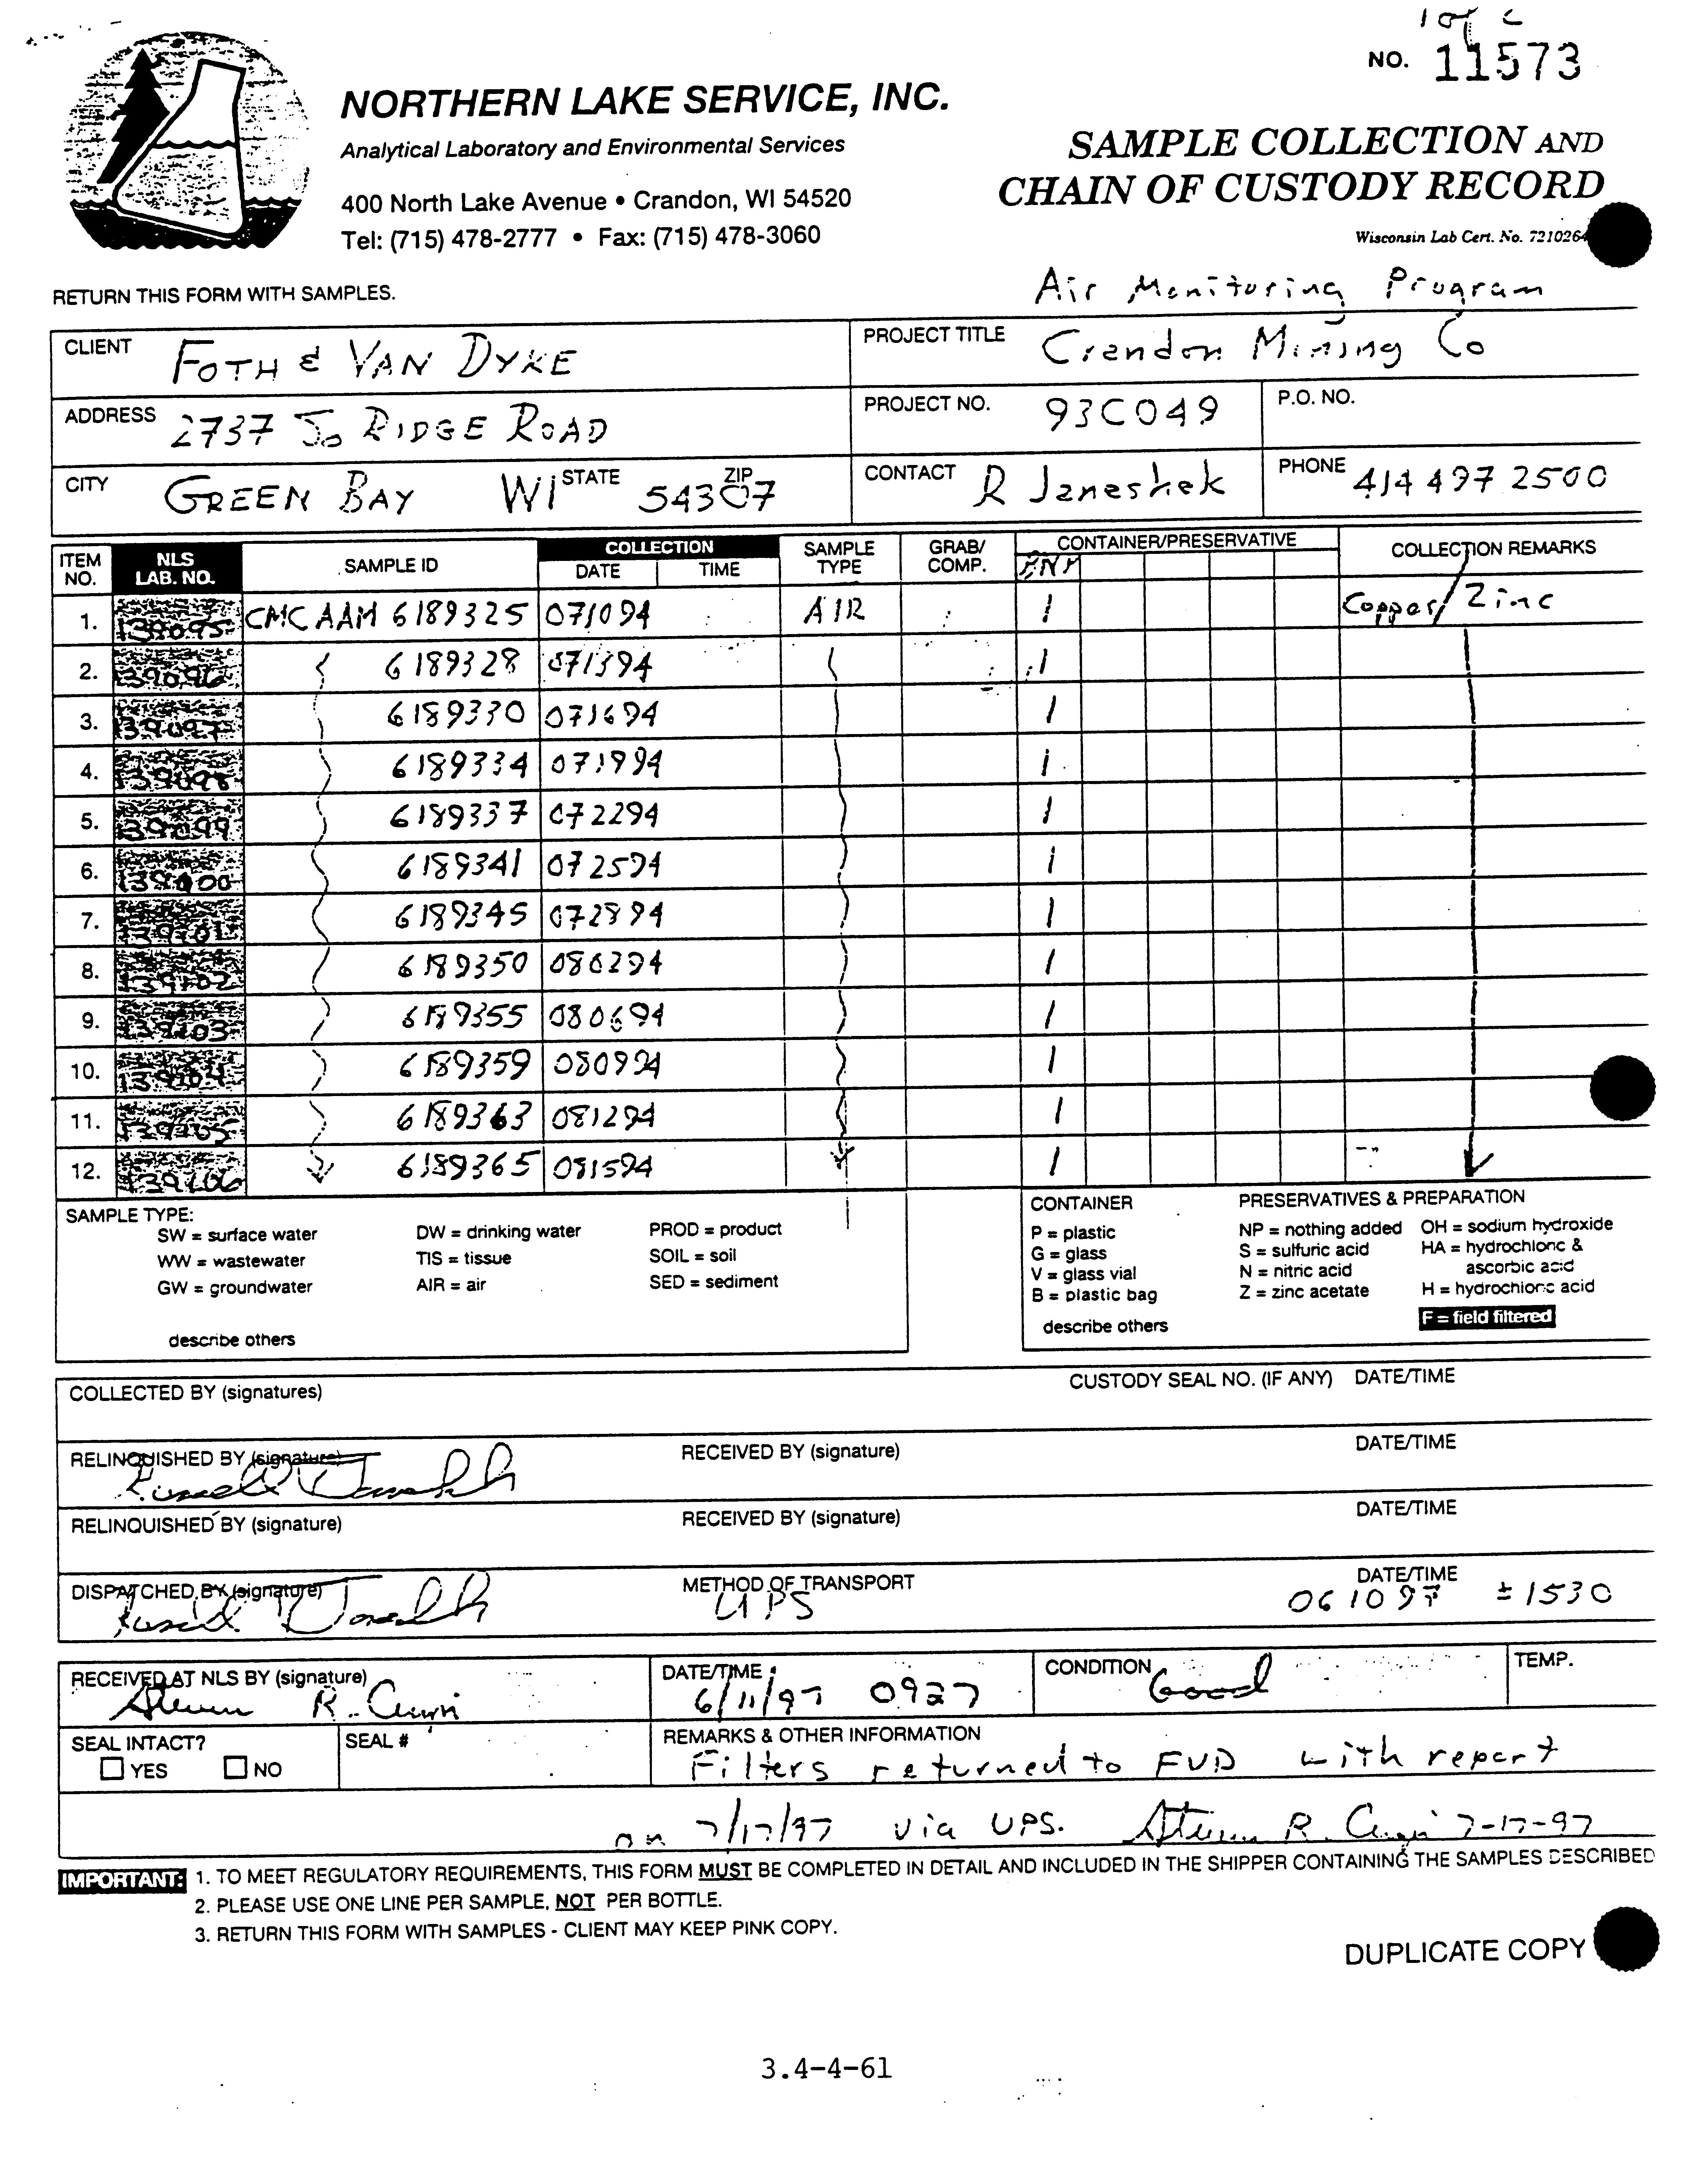 1 of
NO. 11573
NORTHERN LAKE SERVICE, INC.
Analytical Laboratory and Environmental Services
400 North Lake Avenue • Crandon, WI 54520
Tel: (715) 478-2777 • Fax: (715) 478-3060
SAMPLE COLLECTION AND
CHAIN OF CUSTODY RECORD
Wisconsin Lab Cert. No. 7210264
RETURN THIS FORM WITH SAMPLES.
Air Monitoring Program
CLIENT FOTH & VAN DYKE PROJECT TITLE Crandon Mining Co
ADDRESS 2737 So RIDGE ROAD PROJECT NO. 93C049 P.O. NO.
CITY GREEN BAY WI STATE ZIP 54307 CONTACT R Janeshek PHONE 414 497 2500
ITEM NO. NLS LAB. NO. SAMPLE ID COLLECTION DATE TIME SAMPLE TYPE GRAB/COMP. CONTAINER/PRESERVATIVE COLLECTION REMARKS
1. 139095 CMC AAM 6189325 071094 AIR 1 Copper/Zinc
2. 139096 6189328 071394 1
3. 139097 6189330 071694 1
4. 139098 6189334 071994 1
5. 139099 6189337 072294 1
6. 139100 6189341 072594 1
7. 139101 6189345 072894 1
8. 139102 6189350 080294 1
9. 139103 6189355 080694 1
10. 139104 6189359 080994 1
11. 139105 6189363 081294 1
12. 139106 6189365 081594 1
SAMPLE TYPE:
SW = surface water DW = drinking water PROD = product
WW = wastewater TIS = tissue SOIL = soil
GW = groundwater AIR = air SED = sediment
describe others
CONTAINER PRESERVATIVES & PREPARATION
P = plastic NP = nothing added OH = sodium hydroxide
G = glass S = sulfuric acid HA = hydrochloric &
V = glass vial N = nitric acid ascorbic acid
B = plastic bag Z = zinc acetate H = hydrochloric acid
describe others F = field filtered
COLLECTED BY (signatures) CUSTODY SEAL NO. (IF ANY) DATE/TIME
RELINQUISHED BY (signature) RECEIVED BY (signature) DATE/TIME
RELINQUISHED BY (signature) RECEIVED BY (signature) DATE/TIME
DISPATCHED BY (signature) METHOD OF TRANSPORT UPS DATE/TIME 061097 ± 1530
RECEIVED AT NLS BY (signature) DATE/TIME 6/11/97 0927 CONDITION Good TEMP.
SEAL INTACT? YES NO SEAL # REMARKS & OTHER INFORMATION
Filters returned to FVD with report
on 7/17/97 via UPS. 7-17-97
IMPORTANT: 1. TO MEET REGULATORY REQUIREMENTS, THIS FORM MUST BE COMPLETED IN DETAIL AND INCLUDED IN THE SHIPPER CONTAINING THE SAMPLES DESCRIBED
2. PLEASE USE ONE LINE PER SAMPLE, NOT PER BOTTLE.
3. RETURN THIS FORM WITH SAMPLES - CLIENT MAY KEEP PINK COPY.
DUPLICATE COPY
3.4-4-61